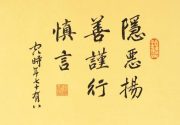 隱惡揚
善謹行
慎言
時年七十有八